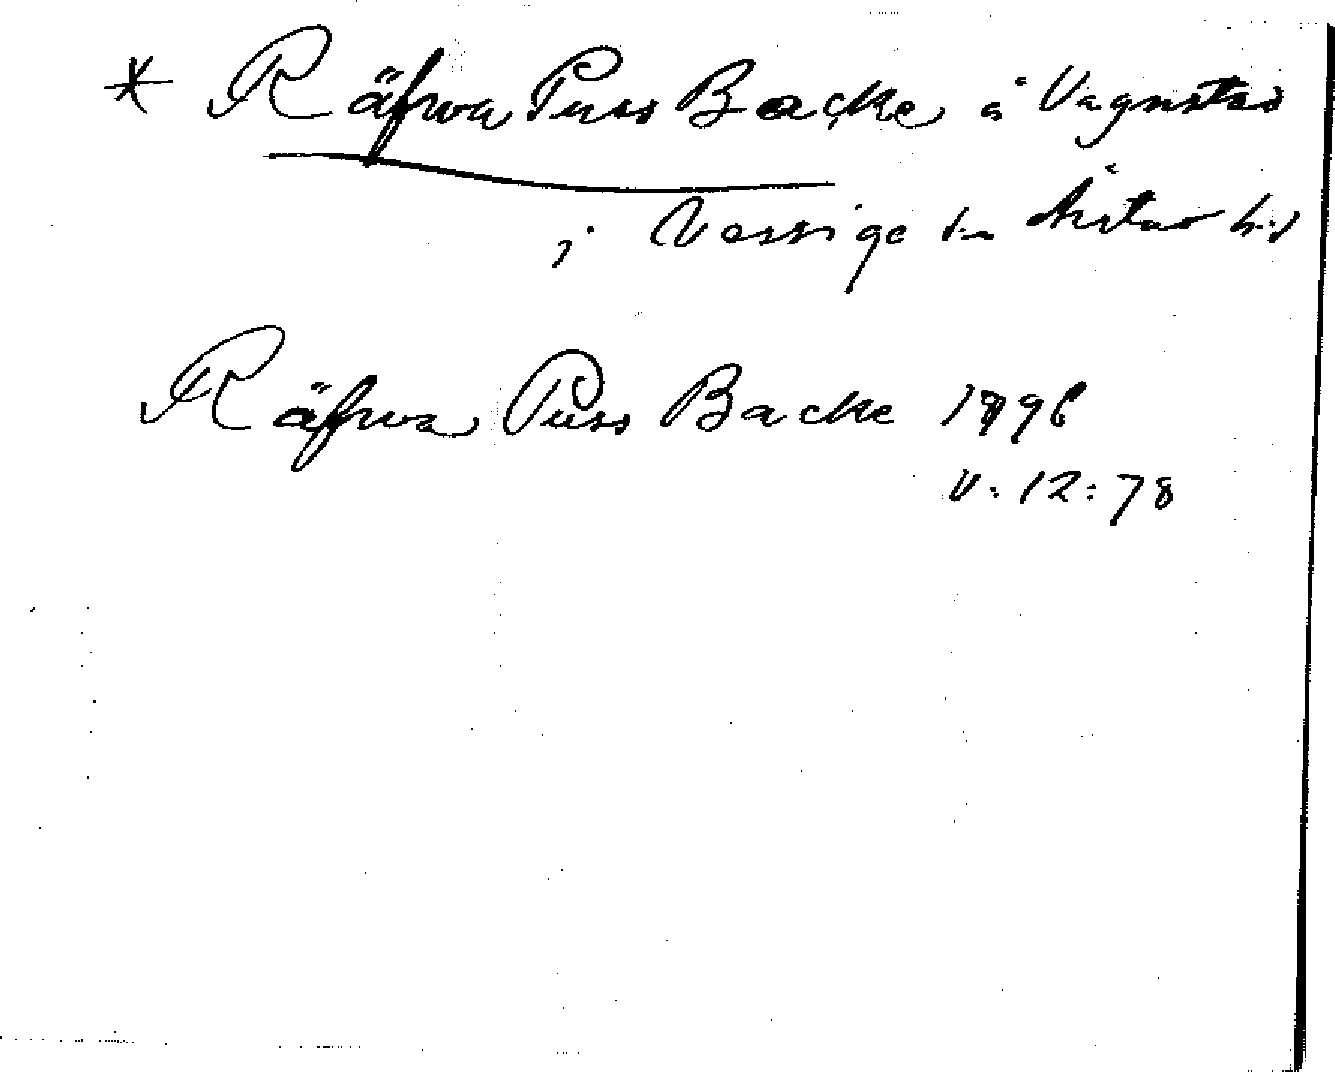 * Räfwa Puss Backe å Vagnstad
i Vessige sn Årstad hd
Räfwa Puss Backe 1796
V: 12: 78